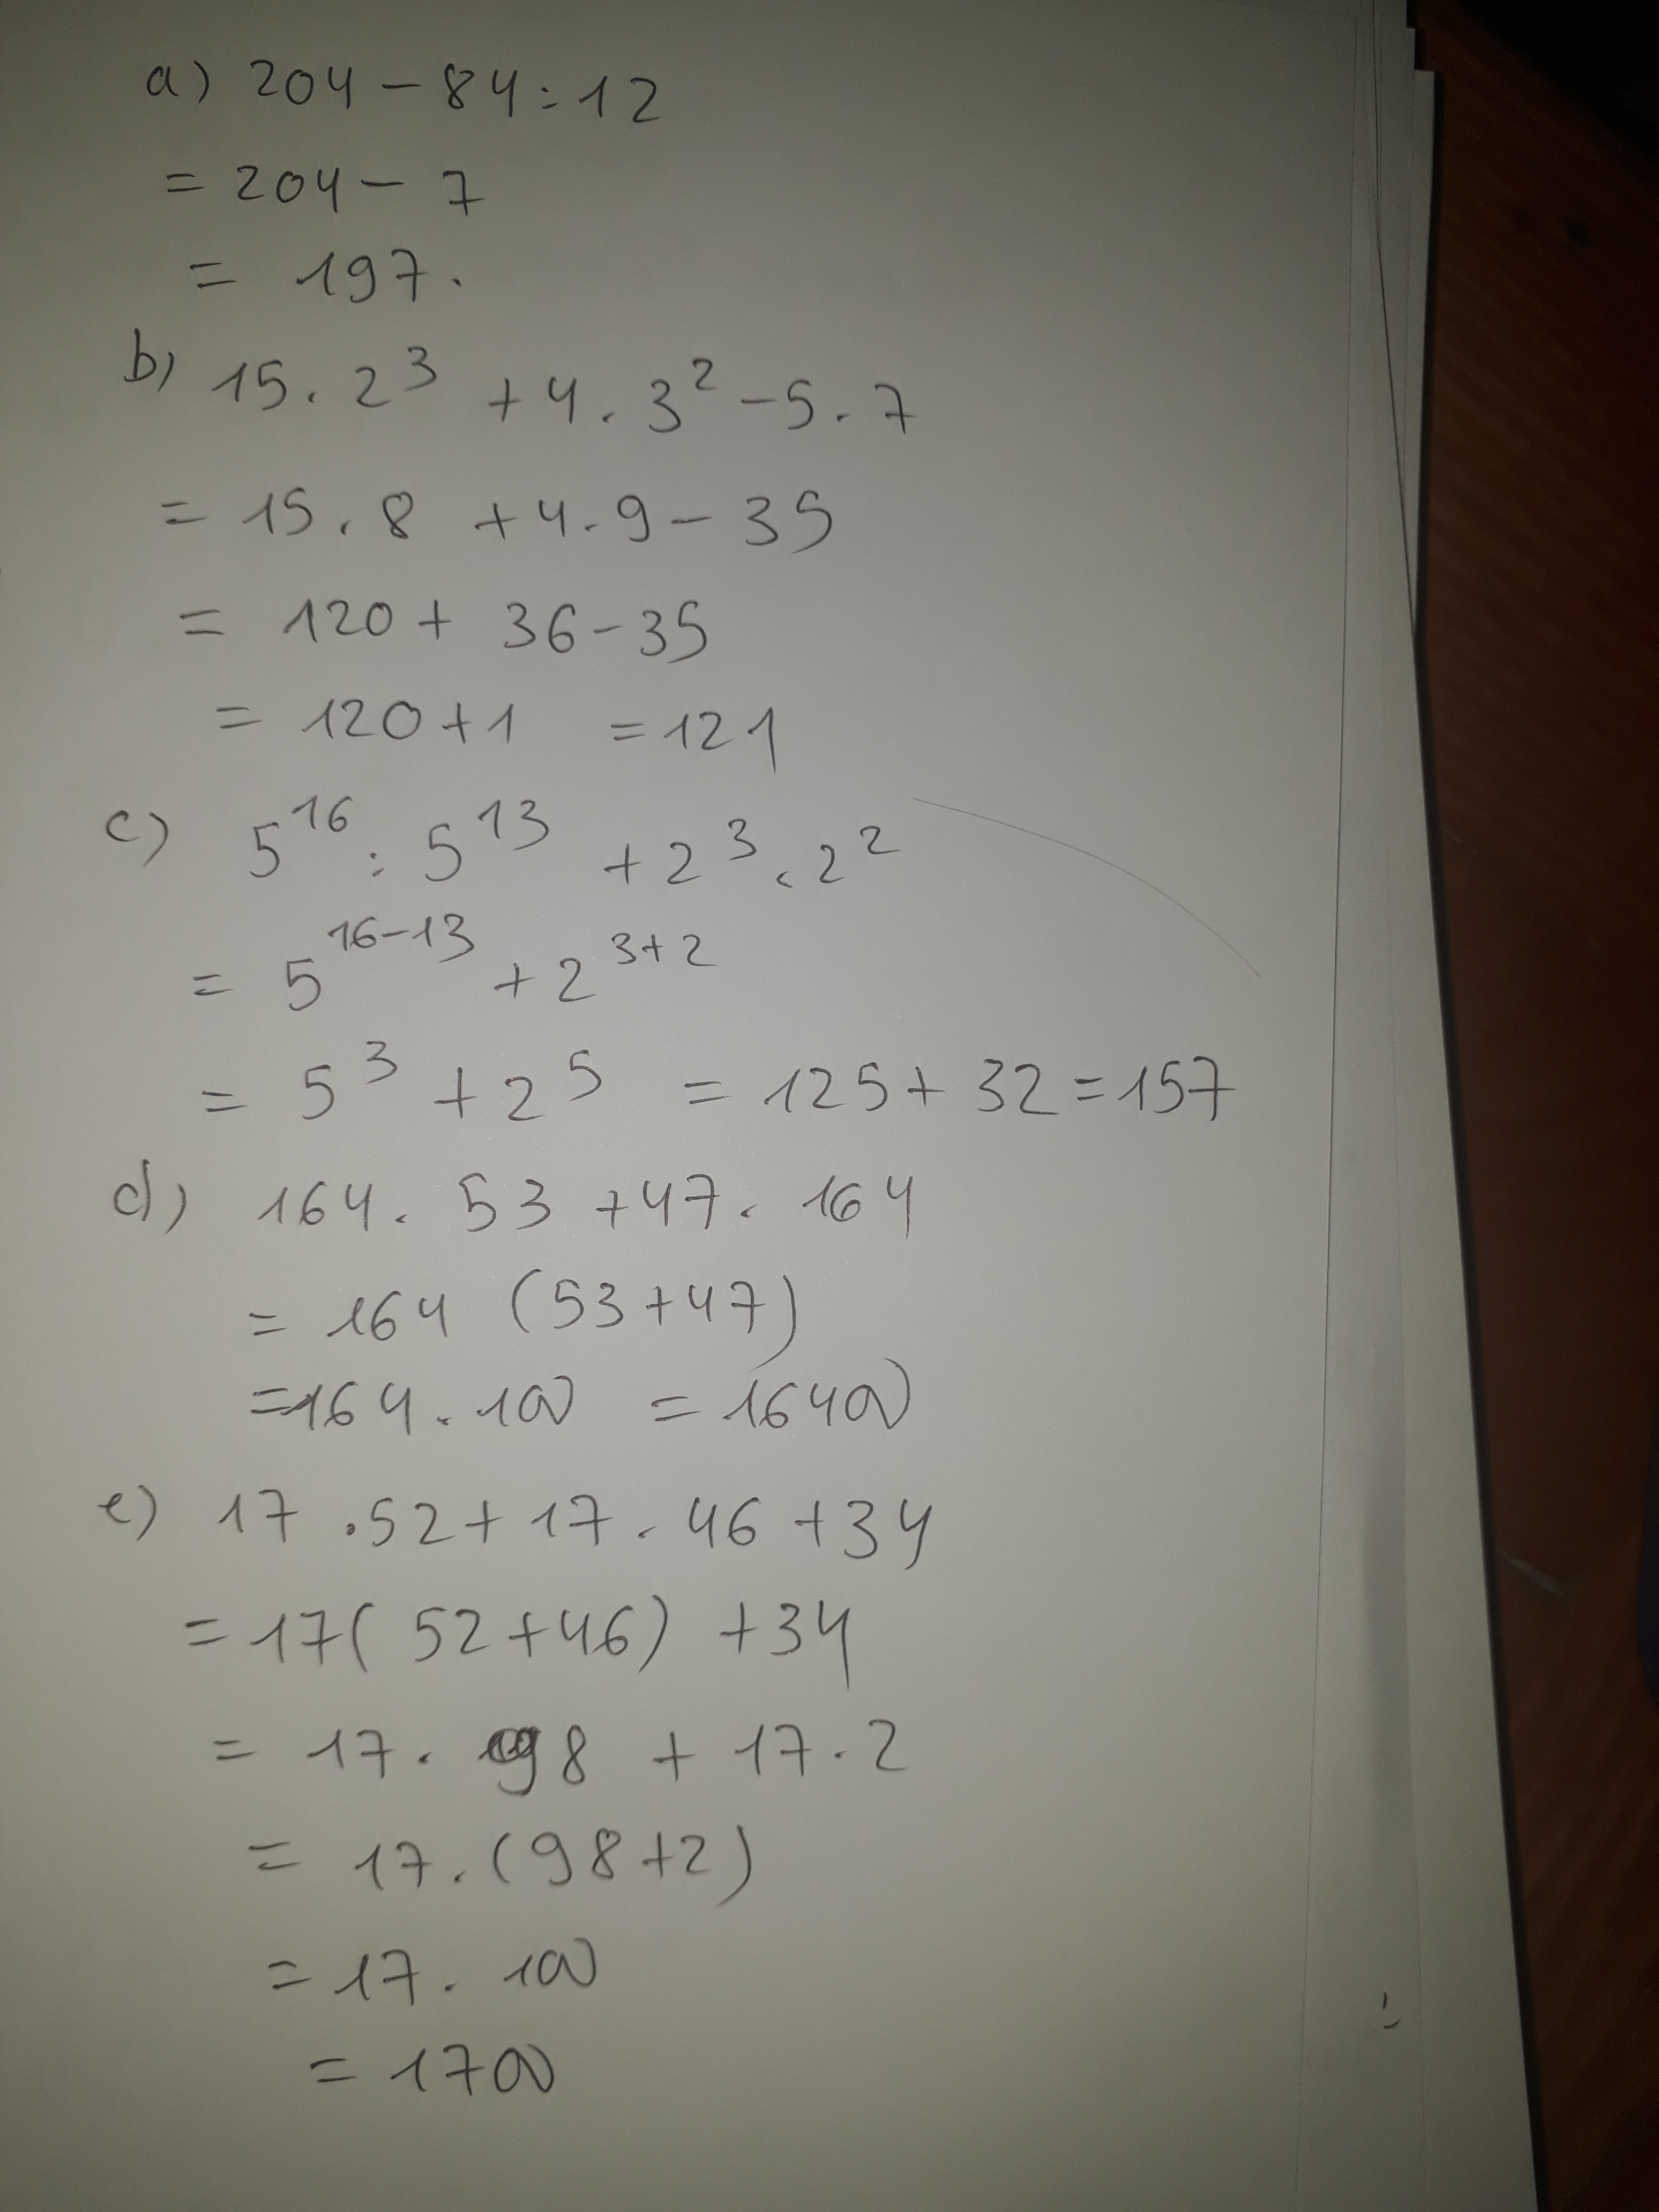 a) 204 - 84 : 12
= 204 - 7
= 197.
b) 15 . 2³ + 4 . 3² - 5 . 7
= 15 . 8 + 4 . 9 - 35
= 120 + 36 - 35
= 120 + 1 = 121
c) 5¹⁶ : 5¹³ + 2³ . 2²
= 5¹⁶⁻¹³ + 2³⁺²
= 5³ + 2⁵ = 125 + 32 = 157
d) 164 . 53 + 47 . 164
= 164 (53 + 47)
= 164 . 100 = 16400
e) 17 . 52 + 17 . 46 + 34
= 17 ( 52 + 46) + 34
= 17 . 98 + 17 . 2
= 17 . (98 + 2)
= 17 . 100
= 1700